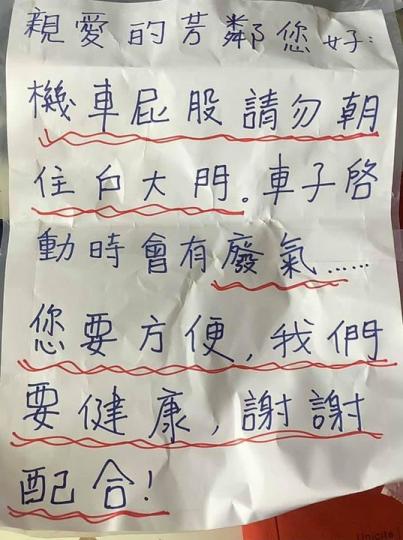 親愛的芳鄰您好:
機車屁股請勿朝
住户大門。車子啓
動時會有廢氣……
您要方便,我們
要健康,謝謝
配合!